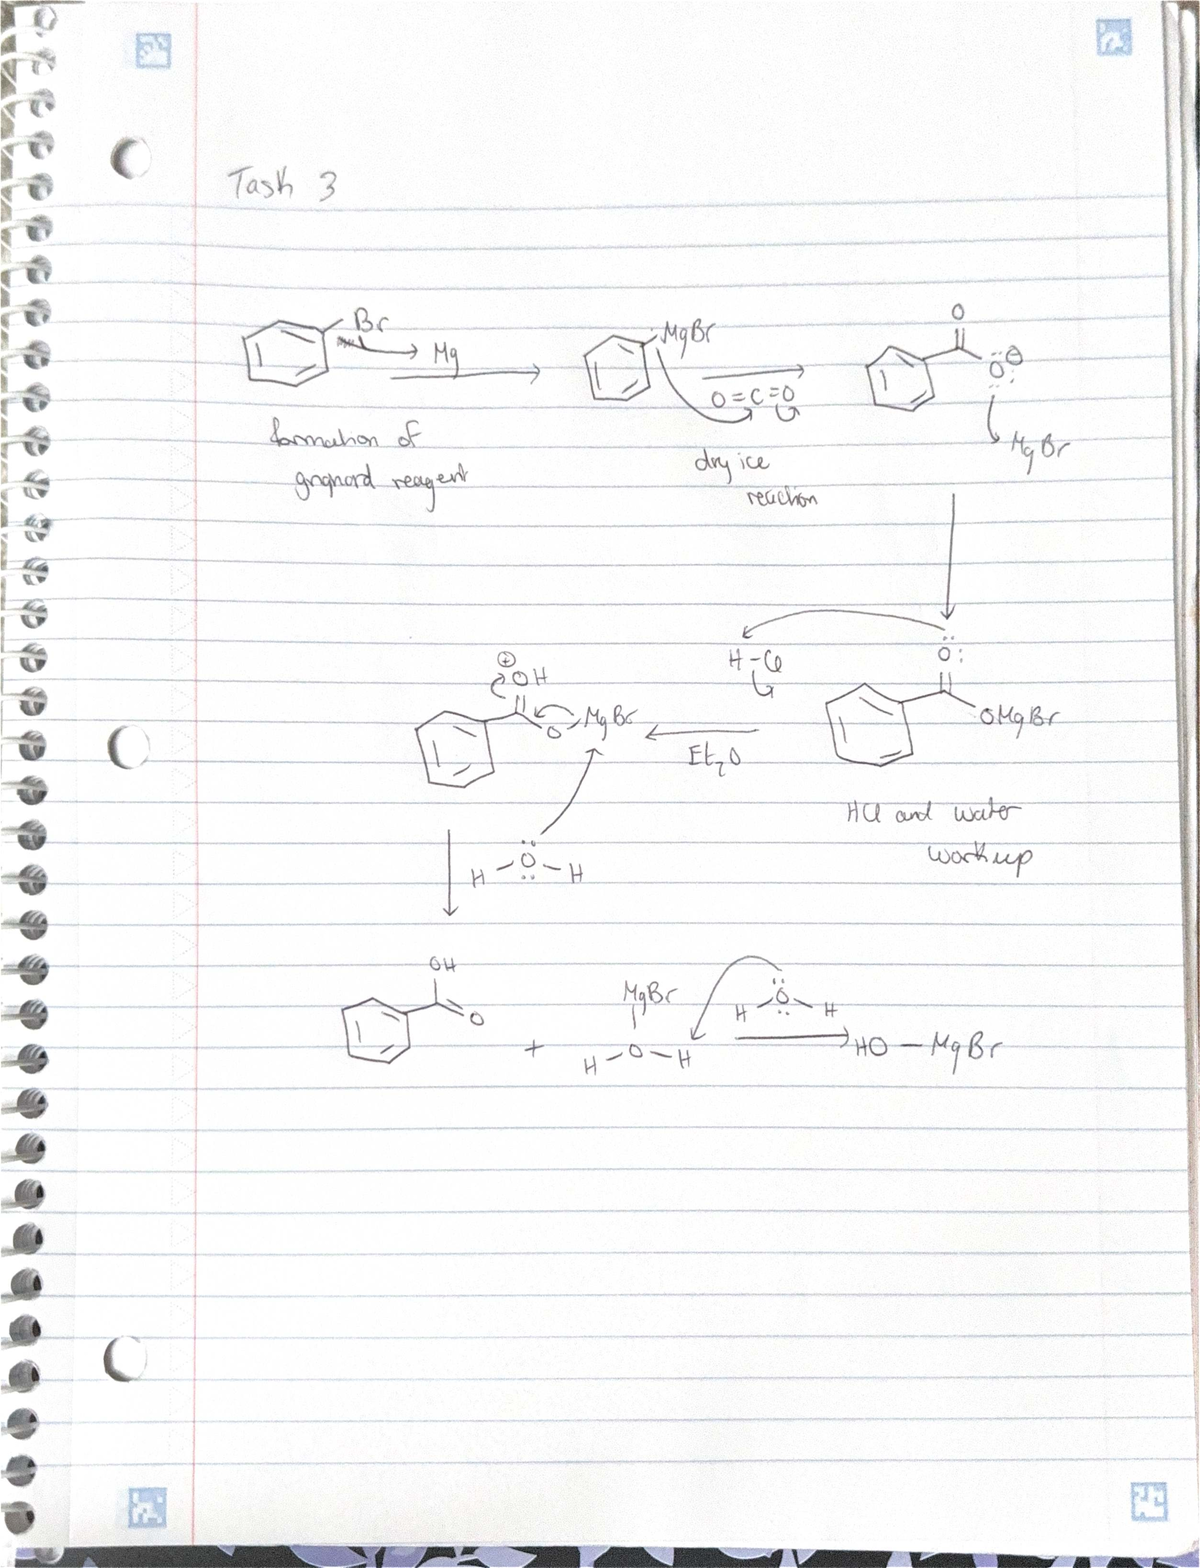 Task 3
Br
Mg
MgBr
O=C=O
O
O⊖
MgBr
formation of
grignard reagent
dry ice
reaction
⊕
OH
O
MgBr
H-Cl
Et₂O
O
OMgBr
HCl and water
workup
H-O-H
OH
O
+
MgBr
H-O-H
H O H
HO-MgBr